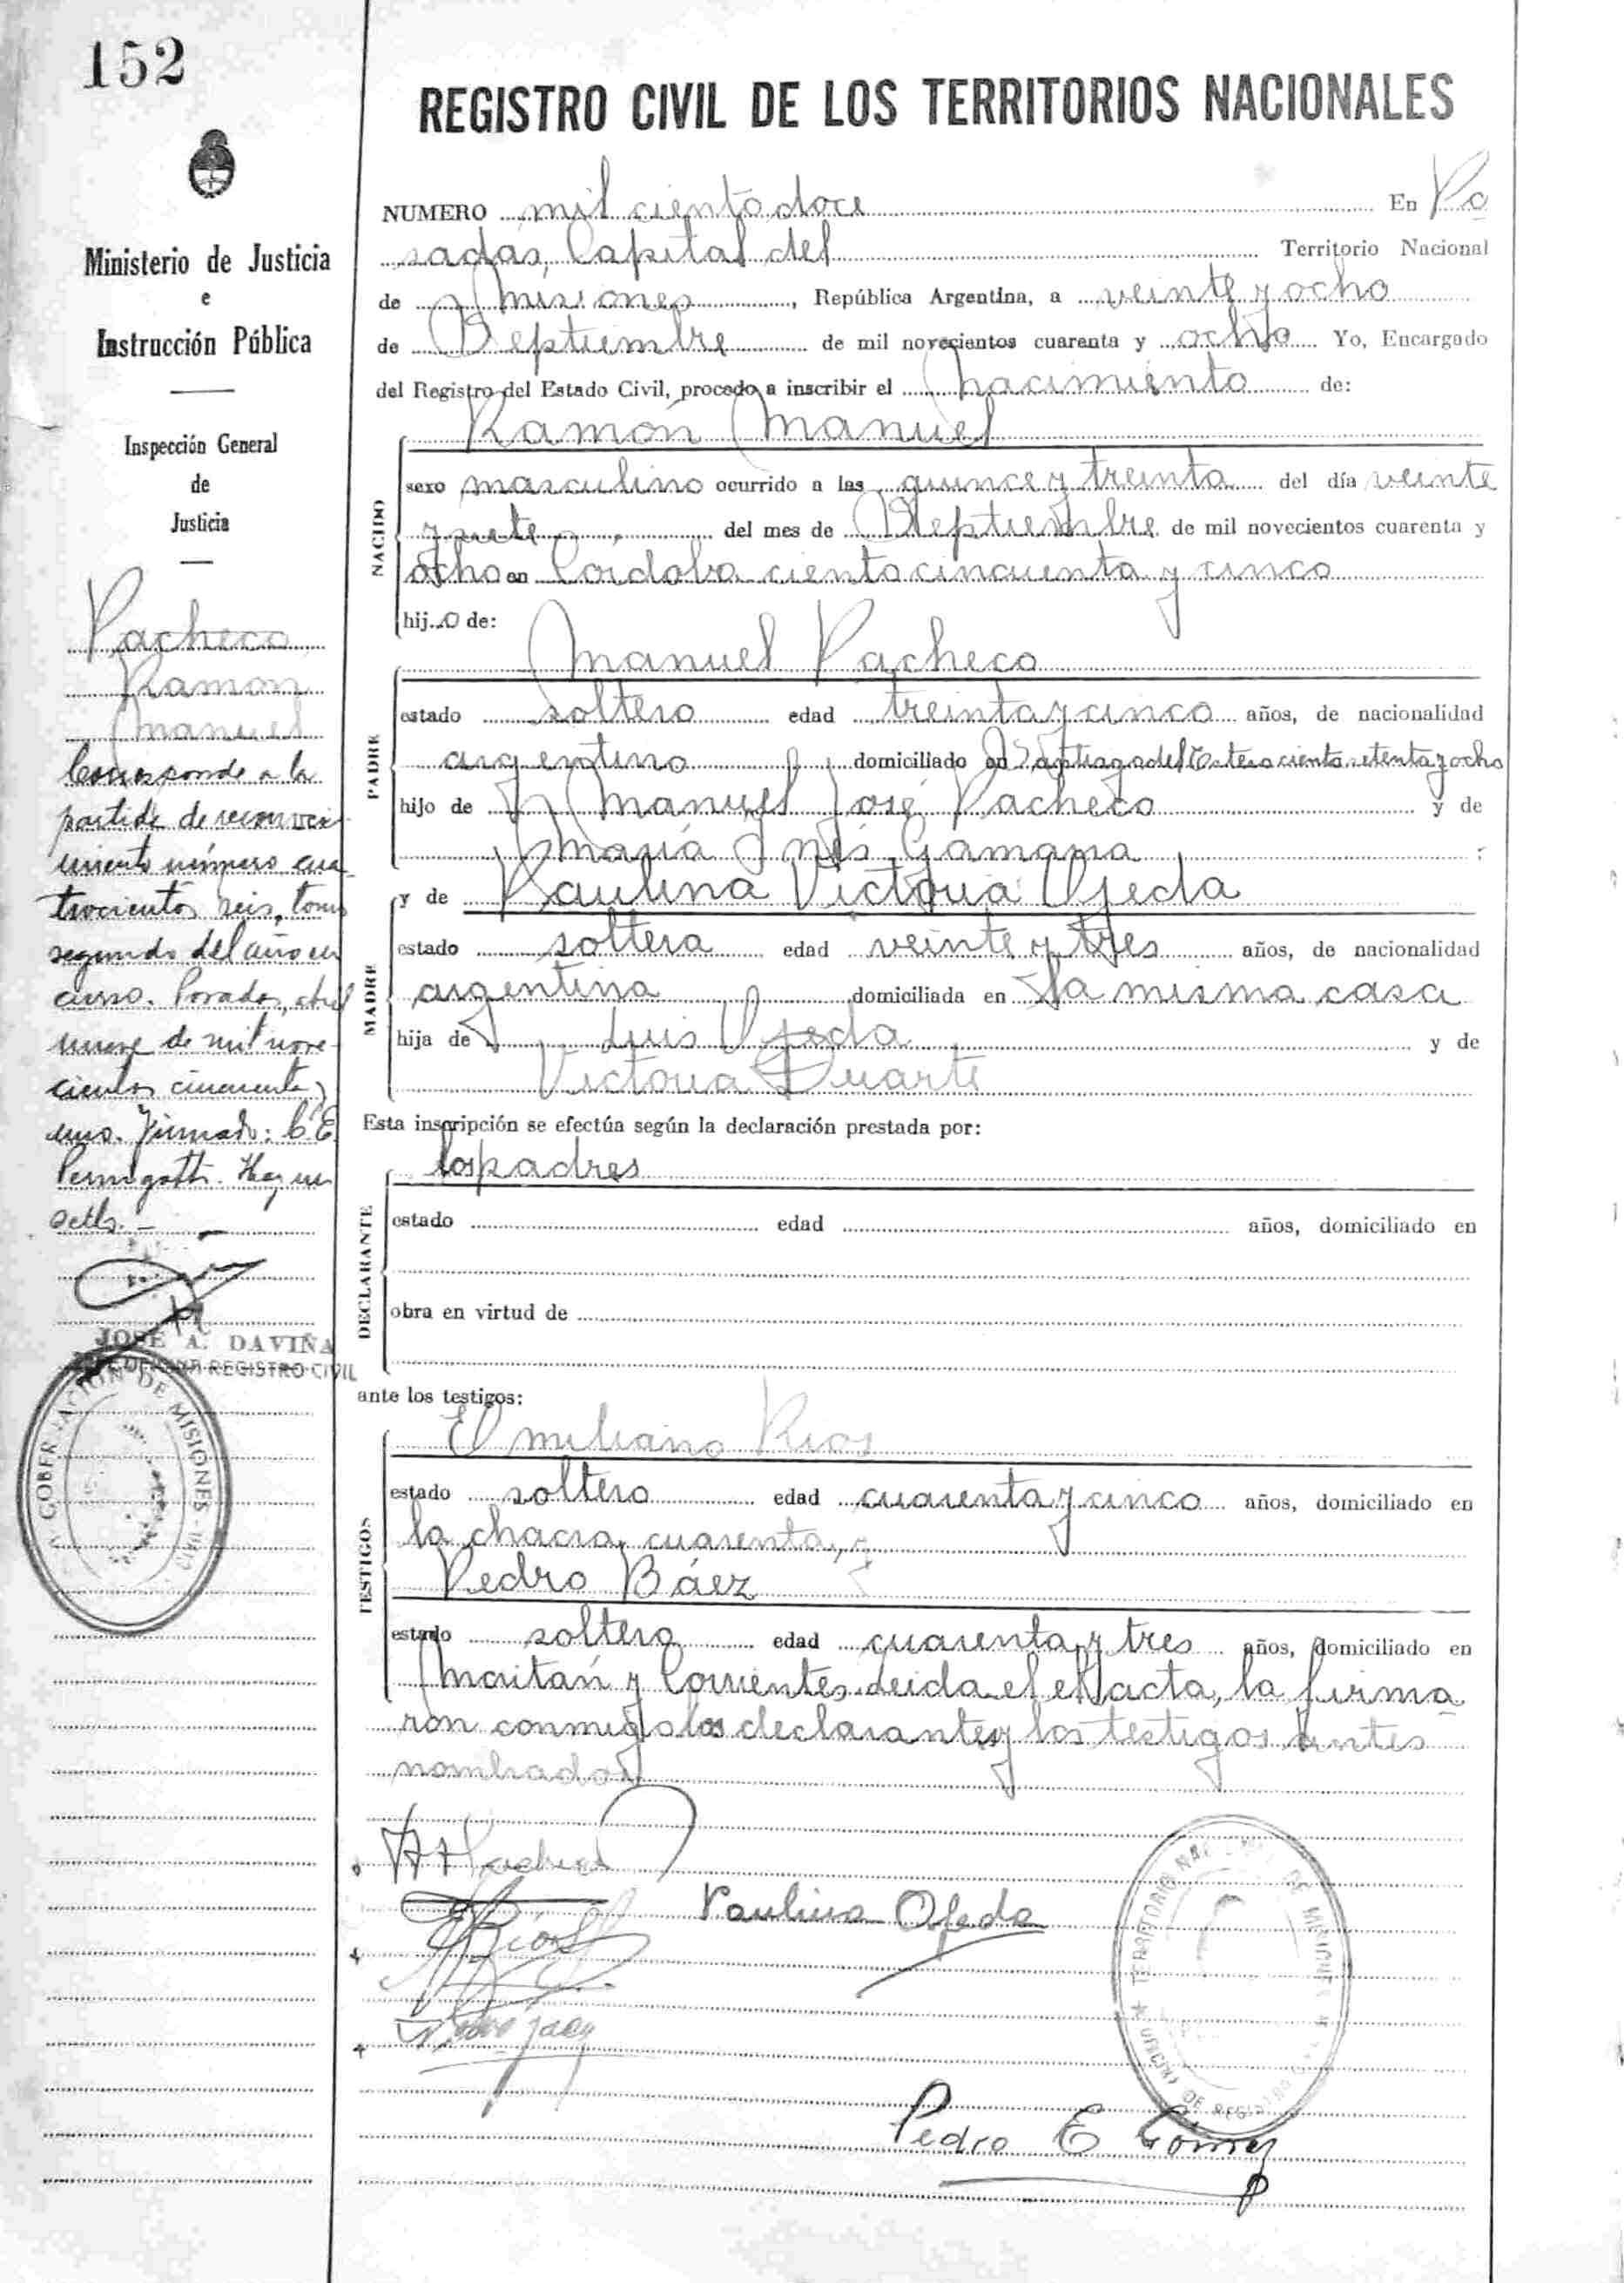 152
Ministerio de Justicia
e
Instrucción Pública
Inspección General
de
Justicia
Pacheco
Ramon
Manuel
Corresponde a la
partida de reconoci
miento número cua
trocientos seis, tomo
segundo del año en
curso. Posadas, abril
nueve de mil nove-
cientos cincuenta y
uno. Firmado: C. E.
Hay un
sello.-
JOSE A. DAVIÑA
REGISTRO CIVIL
GOBERNACION DE MISIONES
REGISTRO CIVIL DE LOS TERRITORIOS NACIONALES
NUMERO mil ciento doce En Po
sadas, Capital del Territorio Nacional
de Misiones, República Argentina, a veinte y ocho
de Septiembre de mil novecientos cuarenta y ocho Yo, Encargado
del Registro del Estado Civil, procedo a inscribir el nacimiento de:
Ramón Manuel
NACIDO
sexo masculino ocurrido a las quince y treinta del día veinte
y siete del mes de Septiembre de mil novecientos cuarenta y
ocho en Córdoba ciento cincuenta y cinco
hijo de:
Manuel Pacheco
PADRE
estado soltero edad treinta y cinco años, de nacionalidad
argentino domiciliado en Santiago del Estero ciento setenta y ocho
hijo de Manuel José Pacheco y de
María Inés Gamana
y de Paulina Victoria Ojeda
MADRE
estado soltera edad veinte y tres años, de nacionalidad
argentina domiciliada en la misma casa
hija de Luis Ojeda y de
Victoria Duarte
Esta inscripción se efectúa según la declaración prestada por:
los padres
DECLARANTE
estado edad años, domiciliado en
obra en virtud de
ante los testigos:
Emiliano Rios
TESTIGOS
estado soltero edad cuarenta y cinco años, domiciliado en
la chacra cuarenta, y
Pedro Báez
estado soltero edad cuarenta y tres años, domiciliado en
Maitán y Corrientes. Leida el acta, la firma
ron conmigo los declarantes y los testigos antes
nombrados
Pacheco
Paulina Ojeda
ERíos
Pedro E Gómez